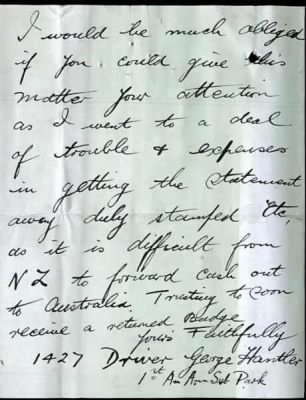 I would be much obliged
if you could give this
matter your attention
as I went to a deal
of trouble & expenses
in getting the statement
away duly stamped etc,
as it is difficult from
NZ to forward cash out
to Australia. Trusting to soon
receive a returned Badge
Yours Faithfully
1427 Driver George Hantler
1st Am Sub Park